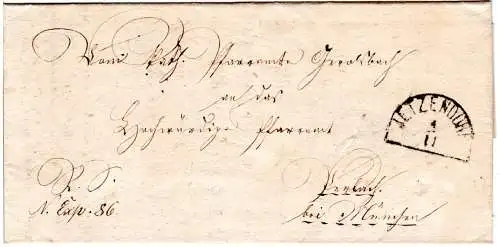 Vom kath. Pfarramte Gerolsbach
an das
Hochwürdige Pfarramt
JETZENDORF
4
11
R. S.
N. Exp: 86
Perlach
bei München